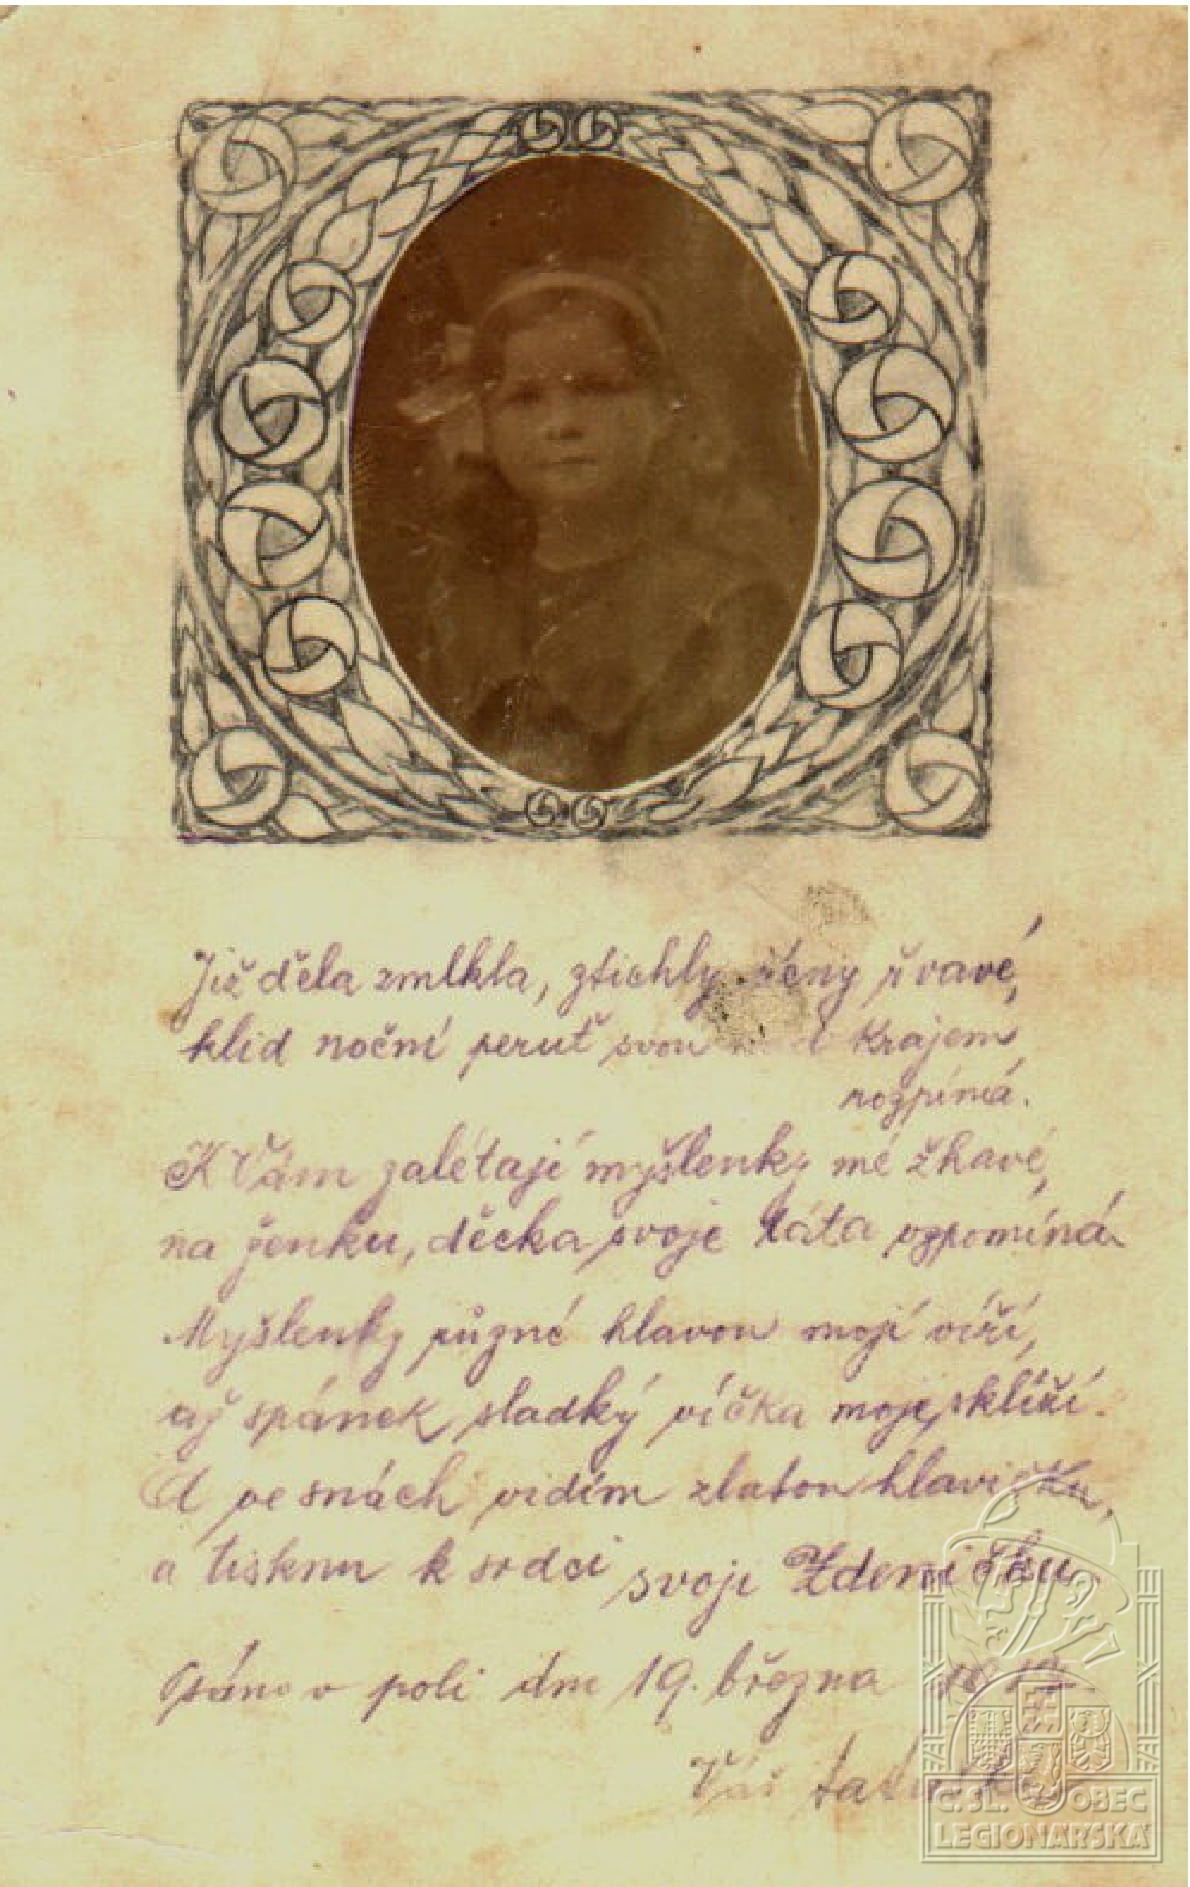 Již děla zmlkla, ztichly řvavé,
klid noční peruť svou nad krajem
rozpíná.
K Vám zalétají myšlenky mé žhavé,
na ženku, děcka svoje táta vzpomíná.
Myšlenky různé hlavou mojí víří,
až spánek sladký víčka moje sklíží.
A ve snách vidím zlatou hlavičku,
a tisknu k srdci svoji Zdeničku.
Psáno v poli dne 19. března
Váš tatínek
Č. SL. OBEC
LEGIONÁŘSKÁ